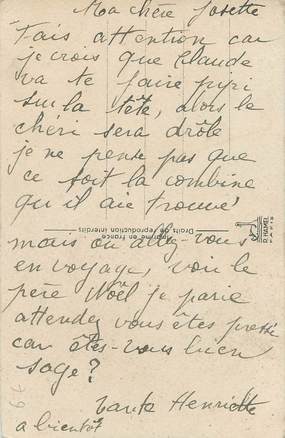 Ma chère Josette
Fais attention car
je crois que Claude
va te faire pipi
sur la tête, alors le
chéri sera drôle
je ne pense pas que
ce soit la combine
qu'il aie trouvé
mais où allez-vous
en voyage, voir le
père Noël je parie
attendez vous êtes pressé
car êtes-vous bien
sage?
Tante Henriette
a bientôt
Imprimé en France
Droits de reproduction interdits
PARIS